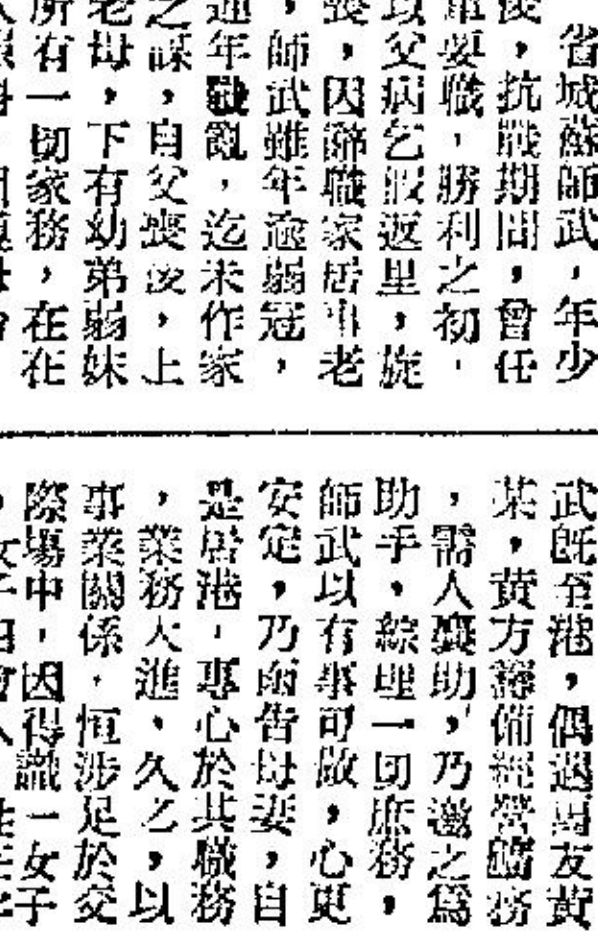 省城蘇師武，年少
後，抗戰期間，曾任
軍要職，勝利之初，
以父病乞假返里，旋
喪，因辭職家居事老
，師武雖年逾弱冠，
連年戰亂，迄未作家
之謀，自父喪後，上
老母，下有幼弟弱妹
所有一切家務，在在
武旣至港，偶遇舊友黃
某，黃方籌備經營礦務
，需人襄助，乃邀之爲
助手，綜理一切庶務，
師武以有事可做，心更
安定，乃函告母妻，自
是居港，專心於其職務
，業務大進，久之，以
事業關係，恒涉足於交
際塲中，因得識一女子